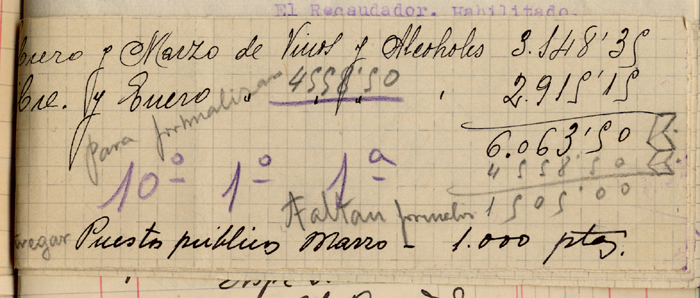 El Recaudador. Habilitado.
Enero y Marzo de Vinos y Alcoholes 3.148'35
Bre. y Enero " 4558'50 " " 2.915'15
para formalizar
6.063'50
4558'50
10º 1º 1ª
Faltan formalizar 1505'00
Puestos públicos Marzo - 1.000 ptas.